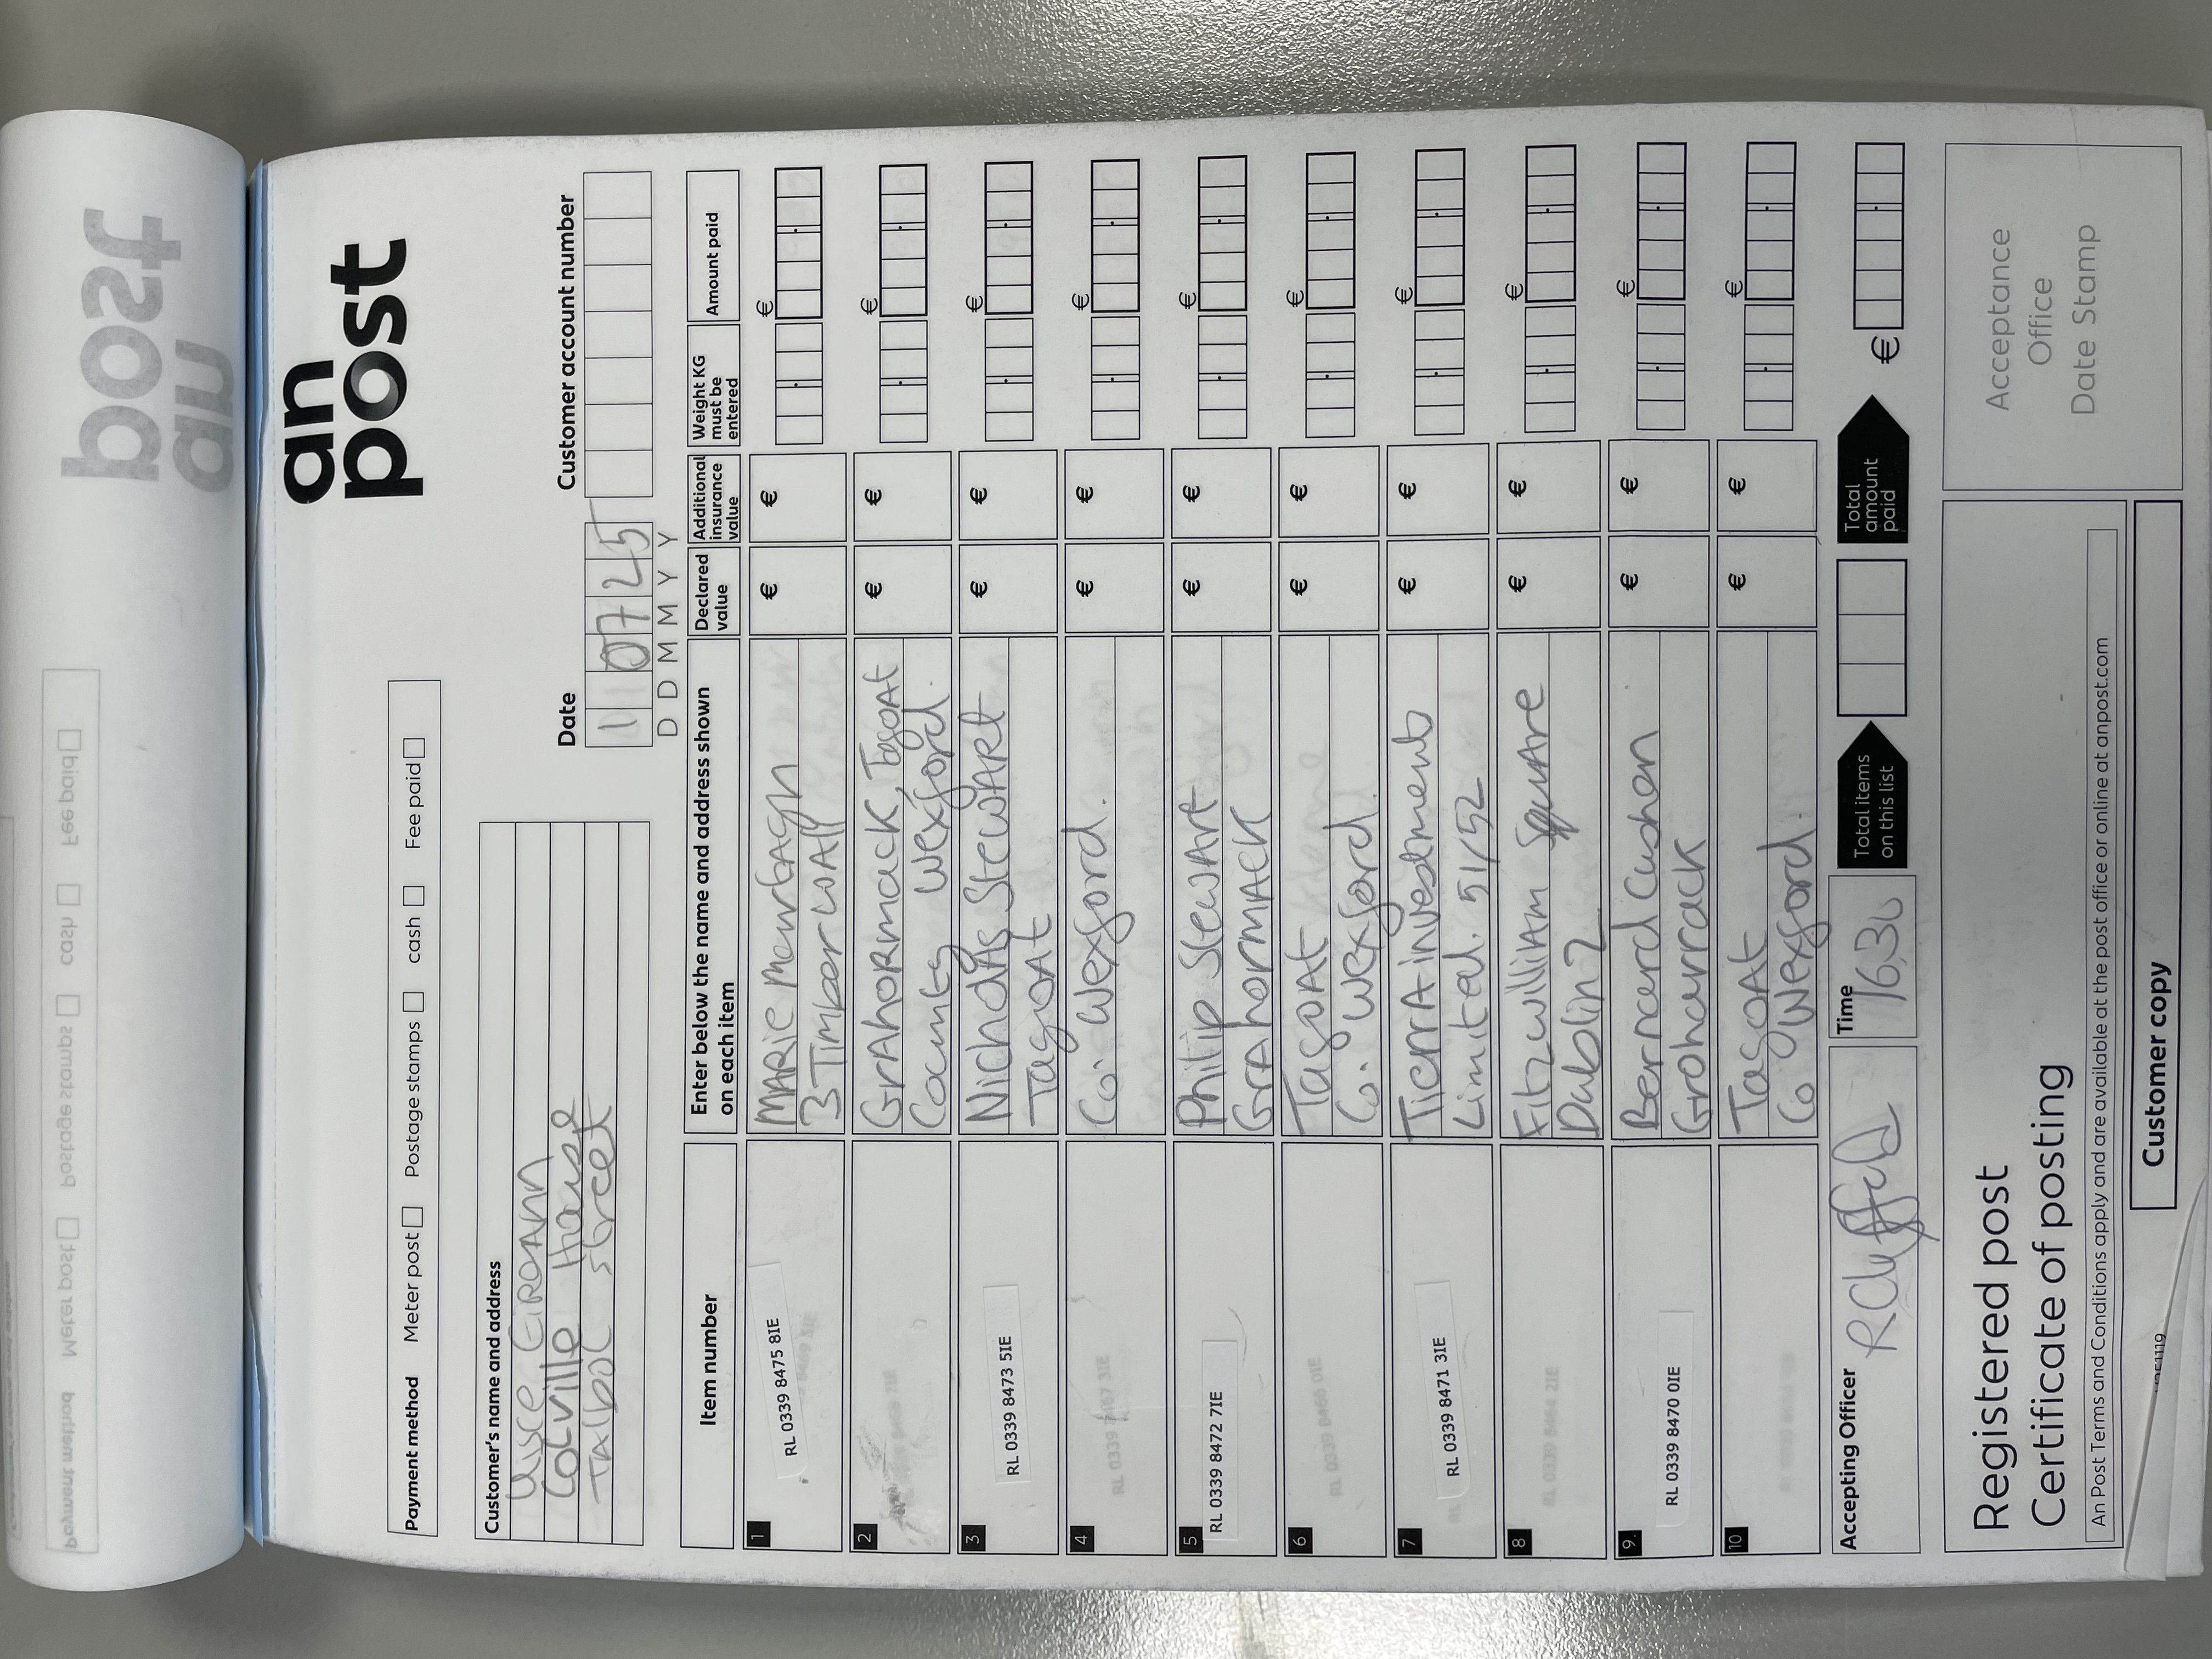 an
post
Payment method Meter post Postage stamps cash Fee paid
Customer's name and address
Uisce EIROANN
COLVILLE House
TALbot street
Date
110725
D D M M Y Y
Customer account number
Item number
Enter below the name and address shown
on each item
Declared
value
Additional
insurance
value
Weight KG
must be
entered
Amount paid
1 RL 0339 8475 8IE MARIE Murtagh € € €
3 Timber WALL
2 GrAHORmack, TagoAt € € €
County Wexford.
3 RL 0339 8473 5IE Nicholas StewARt € € €
TagoAt
4 Co. Wexford. € € €
5 RL 0339 8472 7IE Philip Stewart € € €
GrAhormACK
6 TagoAt € € €
Co. Wexford
7 RL 0339 8471 3IE TierrA Investments € € €
Limited. 51/52
8 Fitzwilliam Square € € €
Dublin 2
9. RL 0339 8470 0IE Bernard Cushen € € €
Grahurrack
10 TagoAt € € €
Co Wexford.
Accepting Officer
Time 16.30
Total items
on this list
Total
amount
paid
€
Registered post
Certificate of posting
An Post Terms and Conditions apply and are available at the post office or online at anpost.com
Acceptance
Office
Date Stamp
Customer copy